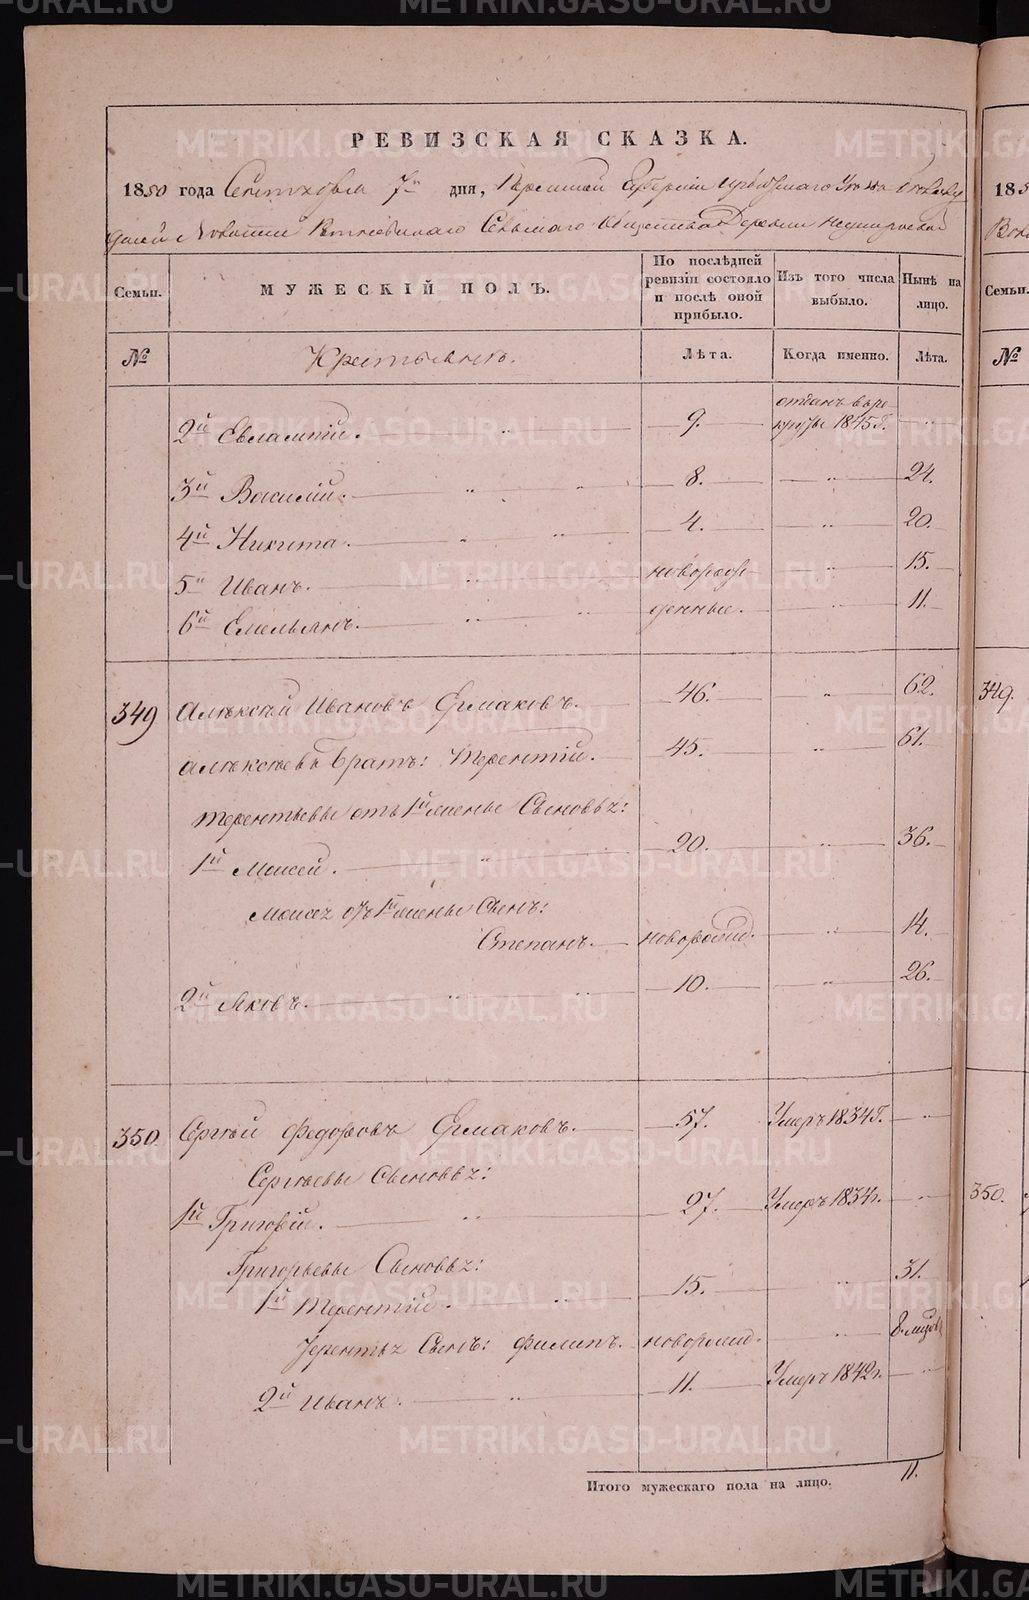 РЕВИЗСКАЯ СКАЗКА.
1850 года Сентября 7го дня, Пермской Губернии Ирбитскаго Уезда
Волости Сельскаго Общества Деревни
Семьи.
МУЖЕСКІЙ ПОЛЪ.
По послѣдней ревизіи состояло и послѣ оной прибыло.
Изъ того числа выбыло.
Нынѣ на лицо.
№
Крестьянъ.
Лѣта.
Когда именно.
Лѣта.
2й Евлампій. 9. отданъ въ рекруты 1845 г. "
3й Василій. " " 8. " 24.
4й Никита. " " 4. " 20.
5й Иванъ. " новорож " 15.
6й Емельянъ. " " денные. " 11.
349 Алексѣй Ивановъ Ермаковъ. 46. " 62.
Алексѣевъ братъ: Терентій. 45. " 61.
Терентьевы отъ 1й жены Сыновья:
1й Моисей. " 20. " 36.
Моисея отъ 1й жены Сынъ:
Степанъ. новорожд. " 14.
2й Яковъ. " " 10. " 26.
350. Сергѣй Федоровъ Ермаковъ. 57. Умеръ 1834 г. "
Сергѣевы Сыновья:
1й Григорій. " 27. Умеръ 1834 г. "
Григорьевы Сыновья:
1й Терентій. " 15. " 31.
Терентья Сынъ: Филипъ. новорожд. "
2й Иванъ. " 11. Умеръ 1842 г. "
Итого мужескаго пола на лицо. 11.
185
Семьи.
№
349.
350.
METRIKI.GASO-URAL.RU